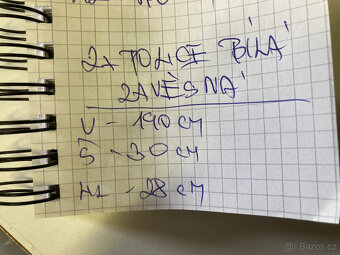 2x POLICE BÍLÁ
ZÁVĚSNÁ
V - 190 cm
Š - 30 cm
HL - 28 cm
Bazos.cz